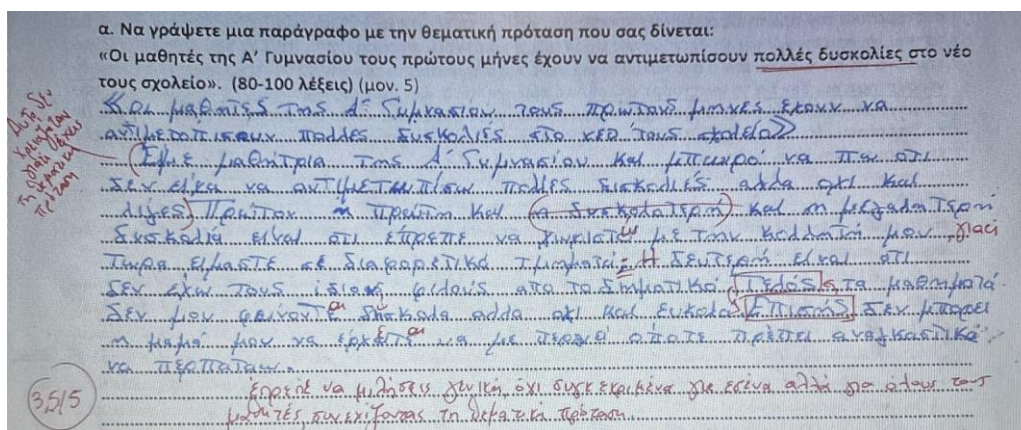 α. Να γράψετε μια παράγραφο με την θεματική πρόταση που σας δίνεται:
«Οι μαθητές της Α' Γυμνασίου τους πρώτους μήνες έχουν να αντιμετωπίσουν πολλές δυσκολίες στο νέο
τους σχολείο». (80-100 λέξεις) (μον. 5)
Αυτό δε
χρειαζόταν
γιατί έχεις
τη θεματική
πρόταση
μαθητές της Α' Γυμνασίου τους πρώτους μηνες εχουν να
αντιμετοπισουν πολλες δυσκολιές στο νεο τους σχολείο»
Είμε μαθήτρια της Α' Γυμνασίου και μπωρό να πω οτι
δεν είχα να αντιμετωπίσω πολλές δισκολιές αλλα οχι και
λιγες) Πρώτον η πρώτη και (η δυσκολοτερη) και η μεγαλοτερη
δυσκολία είναι οτι έπρεπε να χωριστω με την κολλητή μου, γιατί
τωρα είμαστε σε διαφορετικά τμηματα. Η δευτερη είναι οτι
δεν εχω τους ίδιους φιλους απο το δημοτικό. Τελός, τα μαθηματα
δεν μου φαινοντε αι δύσκολα αλλα οχι και ευκολα. Επισης δεν μπορει
η μαμά μου να έρχετε αι να με περνει οποτε πρέπει αναγκαστικά
να περπαταω.
έπρεπε να μιλήσεις γενικά, όχι συγκεκριμένα για εσένα αλλά για όλους τους
μαθητές, συνεχίζοντας τη θεματική πρόταση
3,5/5